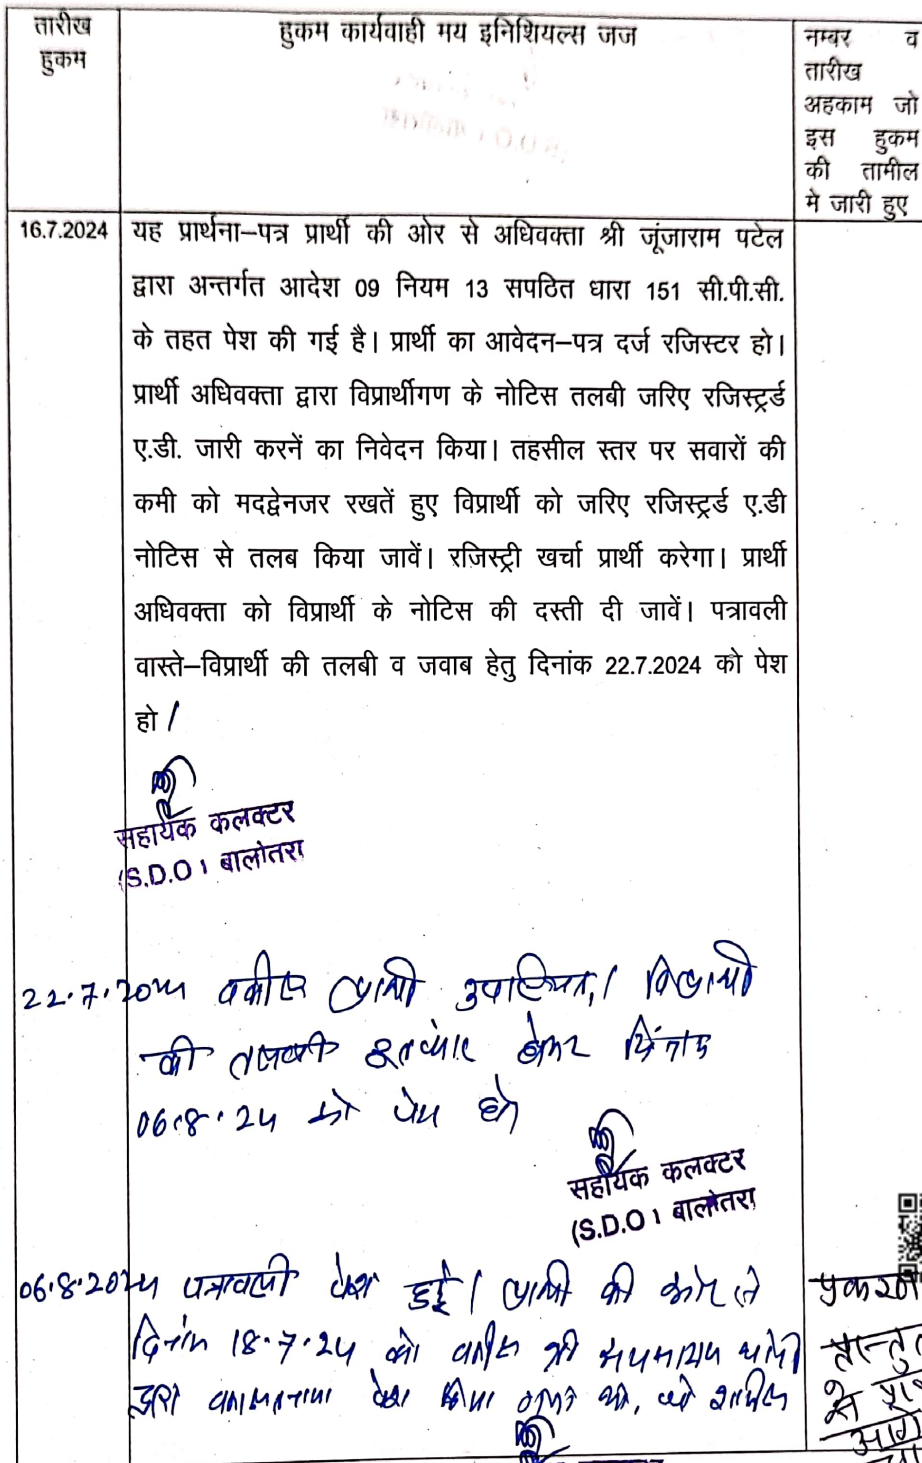 तारीख
हुकम
हुकम कार्यवाही मय इनिशियल्स जज
नम्बर व
तारीख
अहकाम जो
इस हुकम
की तामील
मे जारी हुए
16.7.2024
यह प्रार्थना–पत्र प्रार्थी की ओर से अधिवक्ता श्री जूंजाराम पटेल
द्वारा अन्तर्गत आदेश 09 नियम 13 सपठित धारा 151 सी.पी.सी.
के तहत पेश की गई है। प्रार्थी का आवेदन–पत्र दर्ज रजिस्टर हो।
प्रार्थी अधिवक्ता द्वारा विप्रार्थीगण के नोटिस तलबी जरिए रजिस्ट्रर्ड
ए.डी. जारी करनें का निवेदन किया। तहसील स्तर पर सवारों की
कमी को मदद्वेनजर रखतें हुए विप्रार्थी को जरिए रजिस्ट्रर्ड ए.डी
नोटिस से तलब किया जावें। रजिस्ट्री खर्चा प्रार्थी करेगा। प्रार्थी
अधिवक्ता को विप्रार्थी के नोटिस की दस्ती दी जावें। पत्रावली
वास्ते–विप्रार्थी की तलबी व जवाब हेतु दिनांक 22.7.2024 को पेश
हो।
सहायक कलक्टर
(S.D.O) बालोतरा
22.7.2024 वकील प्रार्थी उपस्थित। विप्रार्थी
की तलबी इन्तजार होकर दिनांक
06.8.24 को पेश हो
सहायक कलक्टर
(S.D.O) बालोतरा
06.8.2024 पत्रावली पेश हुई। प्रार्थी की ओर से
दिनांक 18.7.24 को वकील श्री
द्वारा वकालतनामा पेश किया गया जो, शामिल
प्रकरण